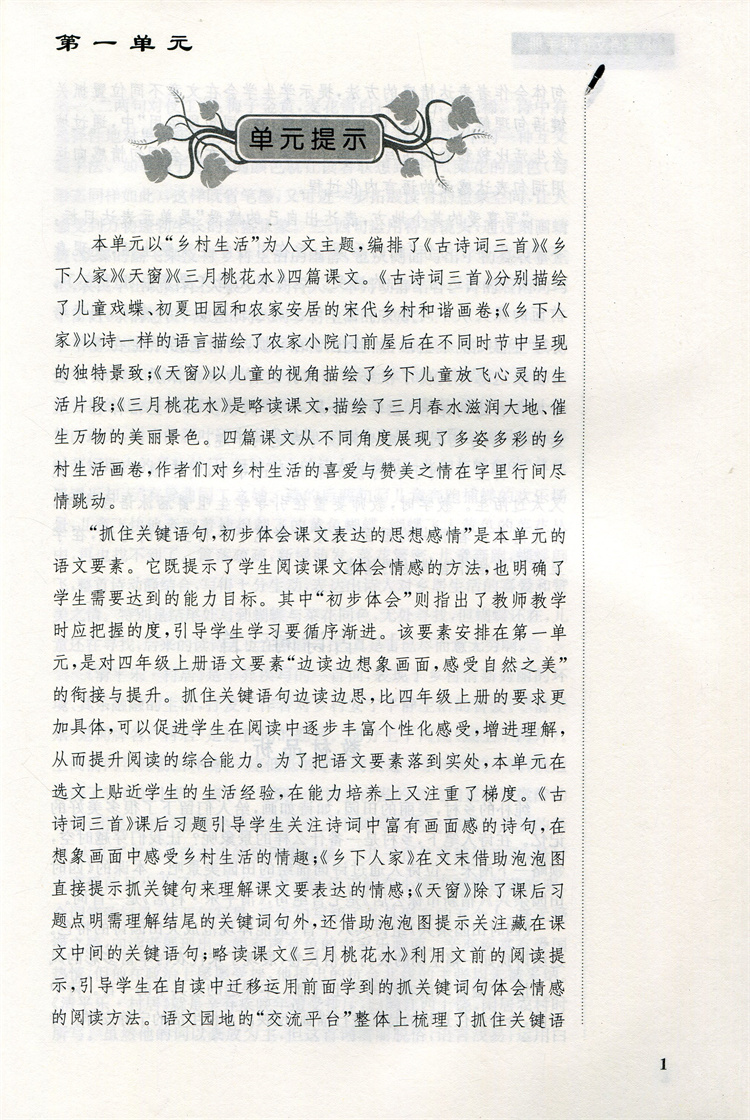 第一单元
单元提示
本单元以“乡村生活”为人文主题，编排了《古诗词三首》《乡
下人家》《天窗》《三月桃花水》四篇课文。《古诗词三首》分别描绘
了儿童戏蝶、初夏田园和农家安居的宋代乡村和谐画卷；《乡下人
家》以诗一样的语言描绘了农家小院门前屋后在不同时节中呈现
的独特景致；《天窗》以儿童的视角描绘了乡下儿童放飞心灵的生
活片段；《三月桃花水》是略读课文，描绘了三月春水滋润大地、催
生万物的美丽景色。四篇课文从不同角度展现了多姿多彩的乡
村生活画卷，作者们对乡村生活的喜爱与赞美之情在字里行间尽
情跳动。
“抓住关键语句，初步体会课文表达的思想感情”是本单元的
语文要素。它既提示了学生阅读课文体会情感的方法，也明确了
学生需要达到的能力目标。其中“初步体会”则指出了教师教学
时应把握的度，引导学生学习要循序渐进。该要素安排在第一单
元，是对四年级上册语文要素“边读边想象画面，感受自然之美”
的衔接与提升。抓住关键语句边读边思，比四年级上册的要求更
加具体，可以促进学生在阅读中逐步丰富个性化感受，增进理解，
从而提升阅读的综合能力。为了把语文要素落到实处，本单元在
选文上贴近学生的生活经验，在能力培养上又注重了梯度。《古
诗词三首》课后习题引导学生关注诗词中富有画面感的诗句，在
想象画面中感受乡村生活的情趣；《乡下人家》在文末借助泡泡图
直接提示抓关键句来理解课文要表达的情感；《天窗》除了课后习
题点明需理解结尾的关键词句外，还借助泡泡图提示关注藏在课
文中间的关键语句；略读课文《三月桃花水》利用文前的阅读提
示，引导学生在自读中迁移运用前面学到的抓关键词句体会情感
的阅读方法。语文园地的“交流平台”整体上梳理了抓住关键语
1